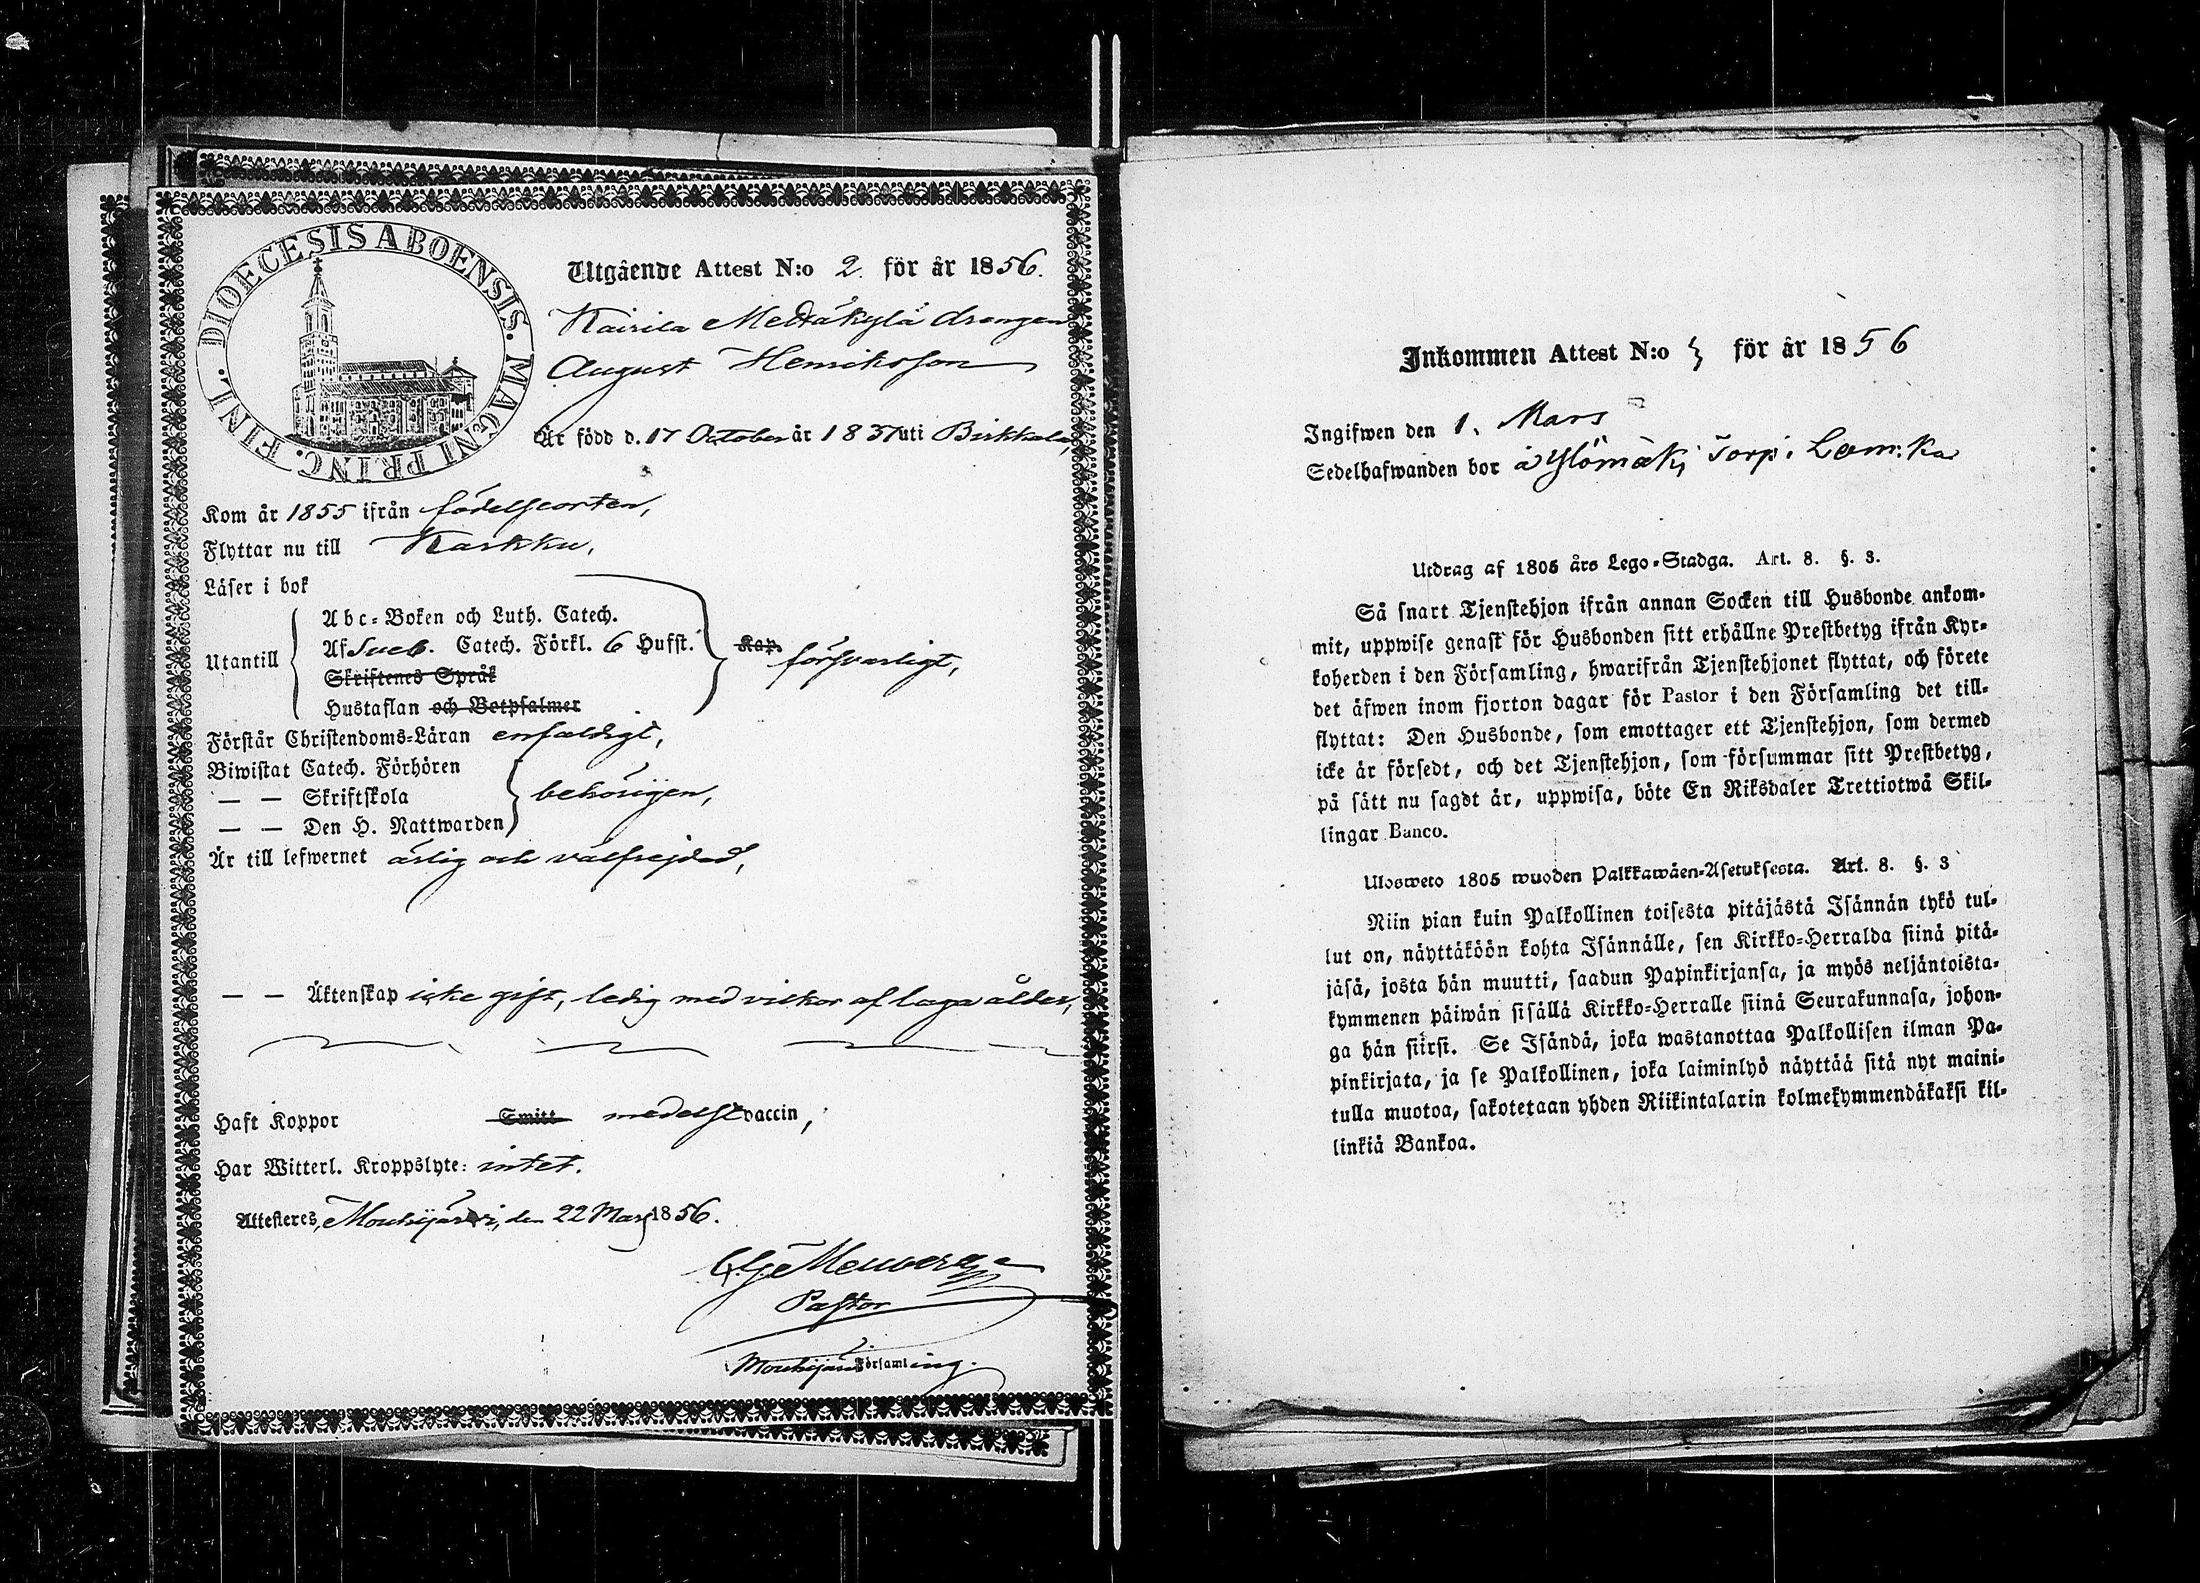 DIOECESIS ABOENSIS. MAGNI PRINC. FINL.
Utgående Attest N:o 2. för år 1856.
Kairila Mellakylä drengen
August Henriksson
Är född d. 17 October år 1837 uti Birkkala,
Kom år 1855 ifrån födelseorten,
Flyttar nu till Karkku,
Läser i bok
Utantill
Abc-Boken och Luth. Catech.
Af Sueb. Catech. Förkl. 6 Hufst.
Skriftenes Språk
Hustaflan och Botpsalmer
Kap. försvarligt,
Förstår Christendoms-Läran enfaldigt,
Biwistat Catech. Förhören
— — Skriftskola
— — Den H. Nattwarden
behörigen,
Är till lefwernet ärlig och välfrejdad,
— — Äktenskap icke gift, ledig med vilkor af laga ålder,
Haft Koppor Smitt medelst vaccin,
Har Witterl. Kroppslyte: intet.
Attesteres, Mouhijärvi, den 22 Mars 1856.
Pastor
i Mouhijärvi Församling.
Inkommen Attest N:o för år 1856
Ingifwen den 1. Mars
Sedelhafwanden bor å Torp i
Utdrag af 1805 års Lego-Stadga. Art. 8. §. 3.
Så snart Tjenstehjon ifrån annan Socken till Husbonde ankom-
mit, uppwise genast för Husbonden sitt erhållne Prestbetyg ifrån Kyr-
koherden i den Församling, hwarifrån Tjenstehjonet flyttat, och förete
det äfwen inom fjorton dagar för Pastor i den Församling det till-
flyttat: Den Husbonde, som emottager ett Tjenstehjon, som dermed
icke är försedt, och det Tjenstehjon, som försummar sitt Prestbetyg,
på sätt nu sagdt är, uppwisa, böte En Riksdaler Trettiotwå Skil-
lingar Banco.
Ulosweto 1805 wuoden Palkkawäen-Asetuksesta. Art. 8. §. 3
Niin pian kuin Palkollinen toisesta pitäjästä Isännän tykö tul-
lut on, näyttäköön kohta Isännälle, sen Kirkko-Herralda siinä pitä-
jäsä, josta hän muutti, saadun Papinkirjansa, ja myös neljäntoista-
kymmenen päiwän sisällä Kirkko-Herralle siinä Seurakunnasa, johon-
ga hän siirsi. Se Isändä, joka wastanottaa Palkollisen ilman Pa-
pinkirjata, ja se Palkollinen, joka laiminlyö näyttää sitä nyt maini-
tulla muotoa, sakotetaan yhden Riikintalarin kolmekymmendäkaksi kil-
linkiä Bankoa.